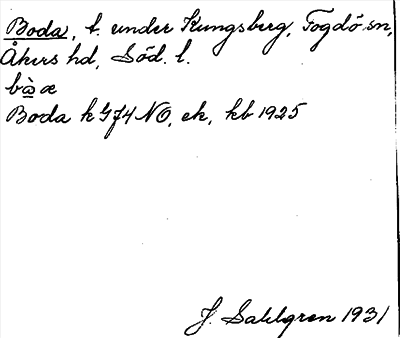 Boda, t. under Kungsberg, Fogdö sn,
Åkers hd, Söd. l.
bò̱a æ
Boda k G74 NO, ek, kb 1925
J. Sahlgren 1931